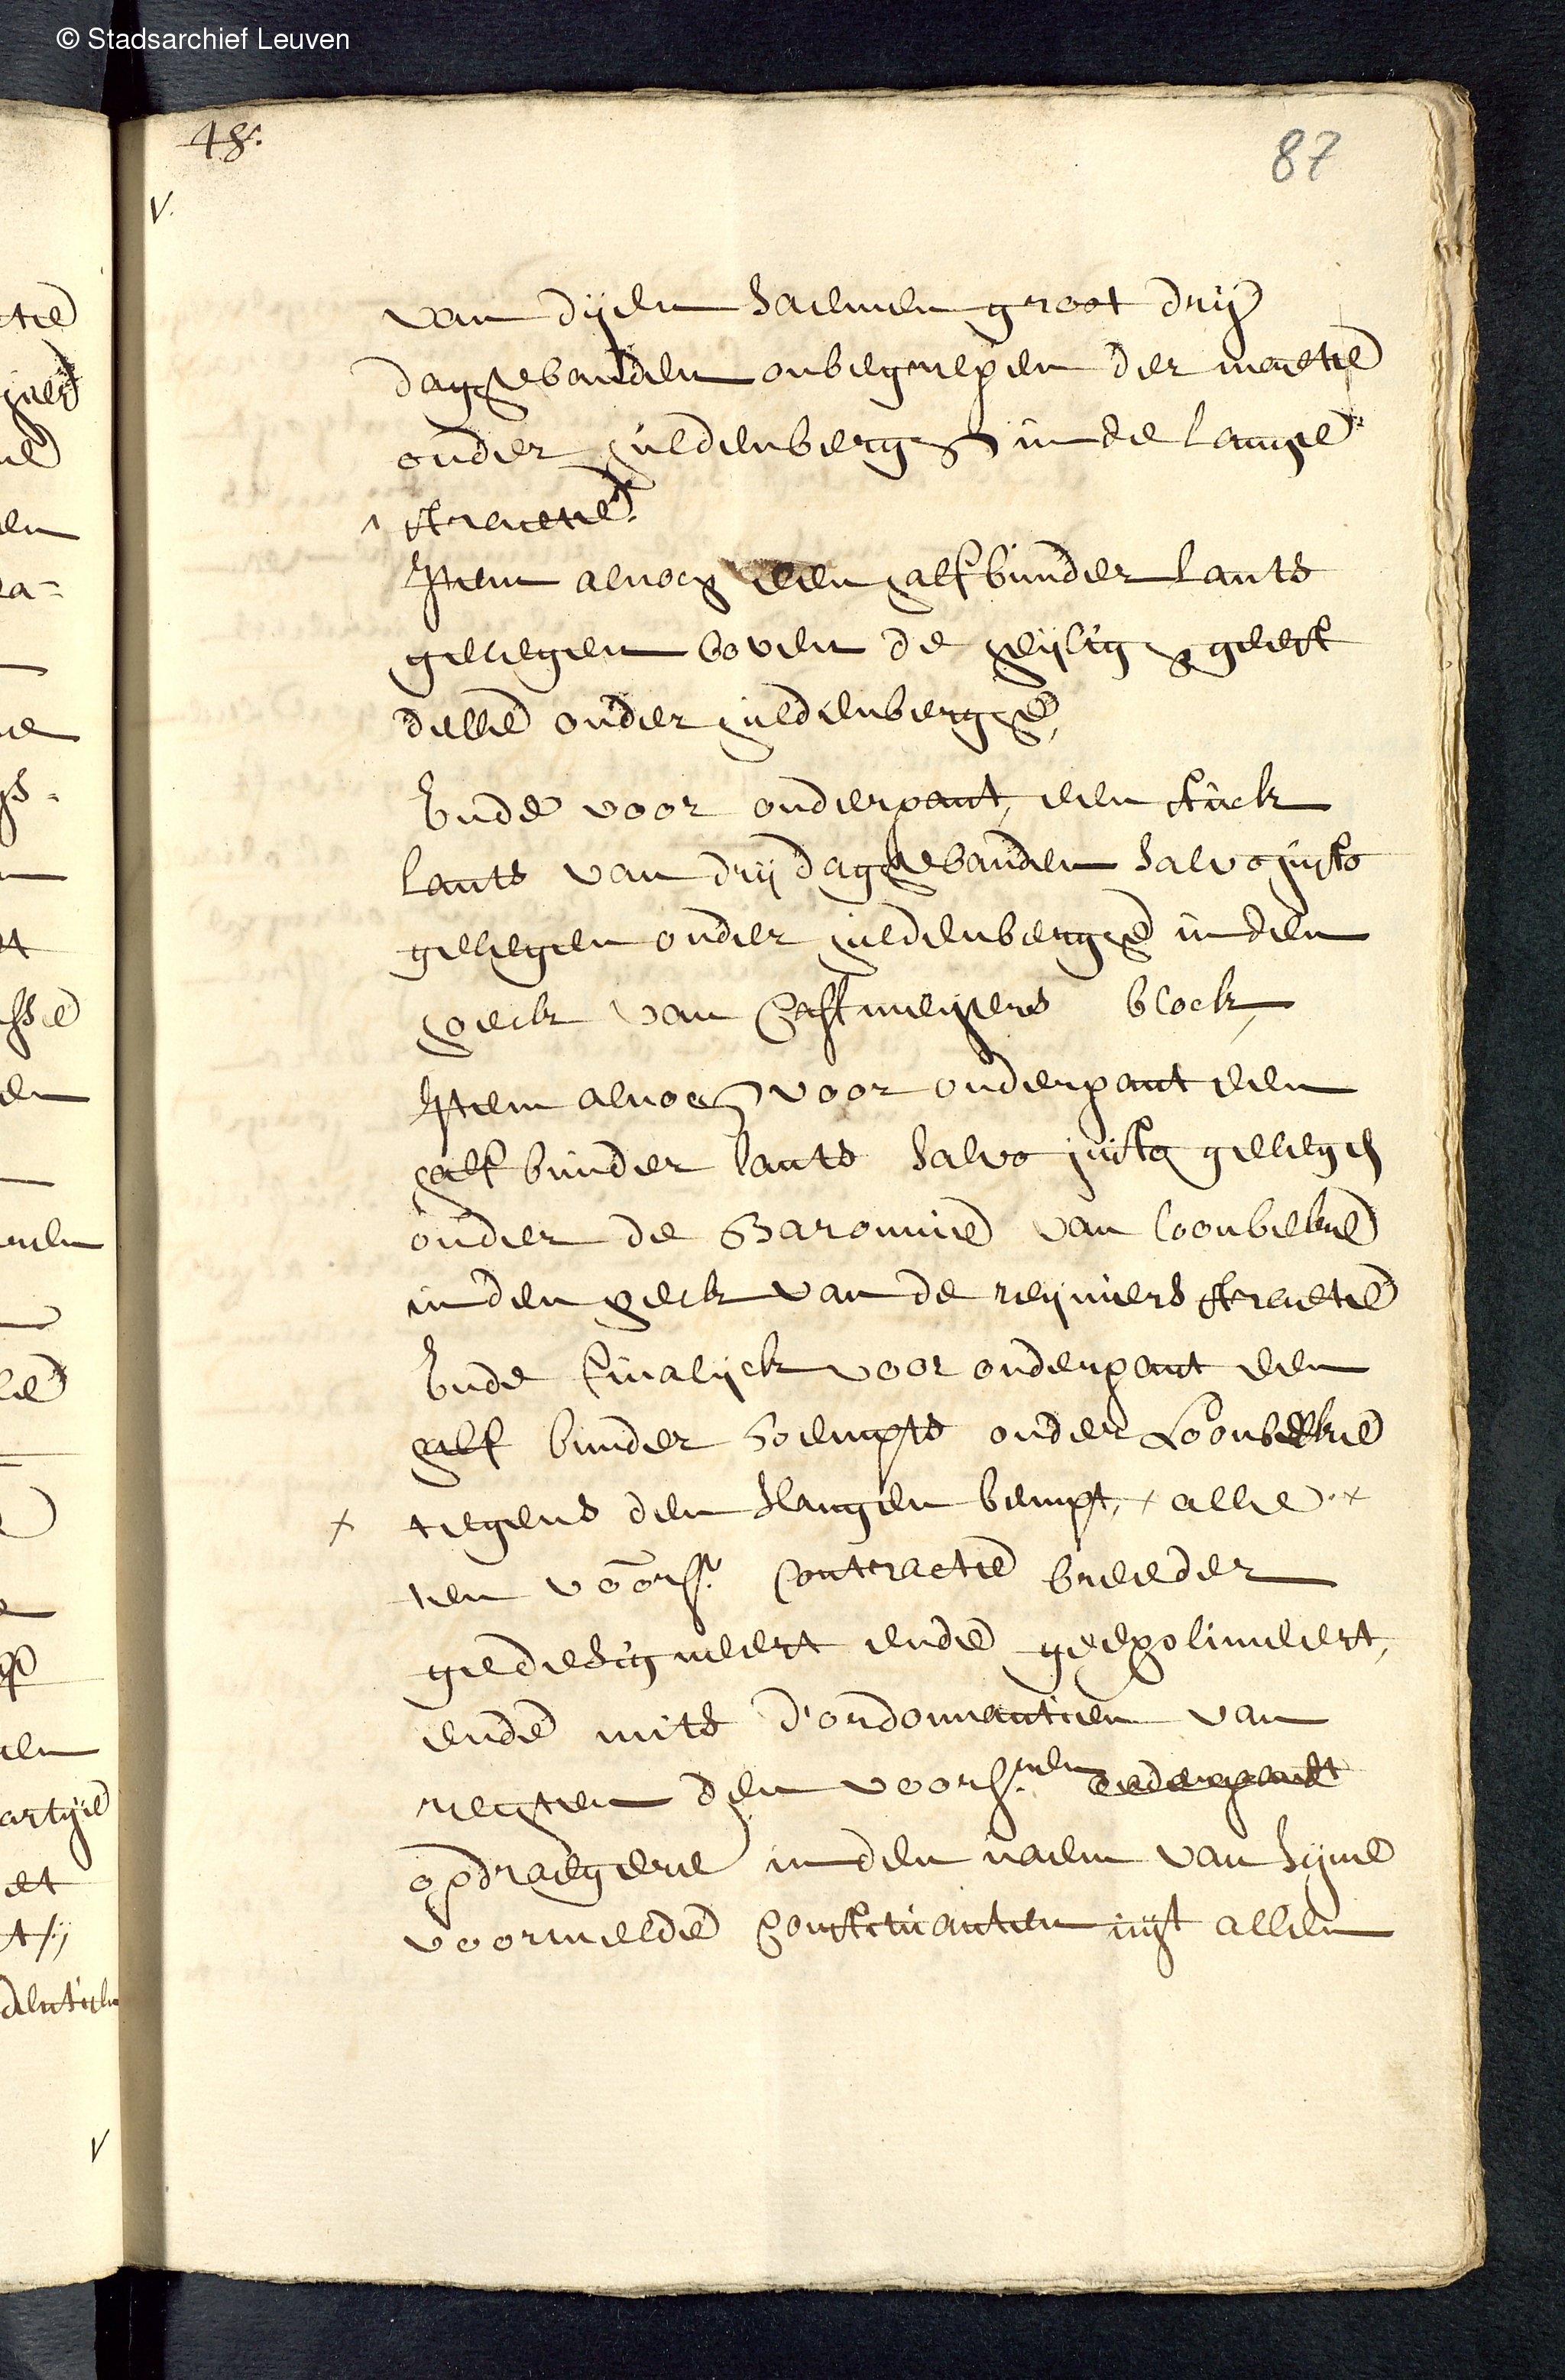 © Stadsarchief Leuven
48.
87
V.
van dijen saemen groot drij
daghwanden onbegrepen der maete
onder huldenbergh in de lange
straete.
Item alnoch een halff bunder lants
gelegen boven de heijligh geest
delle onder huldenberghe,
Ende voor onderpant, een stuck
lants van drij daghwanden salvo justo
gelegen onder huldenberghe in den
hoeck van block,
Item alnoch voor onderpant een
halff bunder lants salvo justo gelegen
onder de Baronnie van loonbeke
in den hoeck van de reijniers straete
Ende finalijck voor onderpant een
halff bunder bempts onder Loonbeke
x tegens den langen bempt, x alle x
ten voors. contracte breeder
gedesigneert ende geexprimeert,
ende mits d'ordonnantien van
rechten den voors.nen
opdraegere in den naem van sijne
voormelde constituanten uijt allen